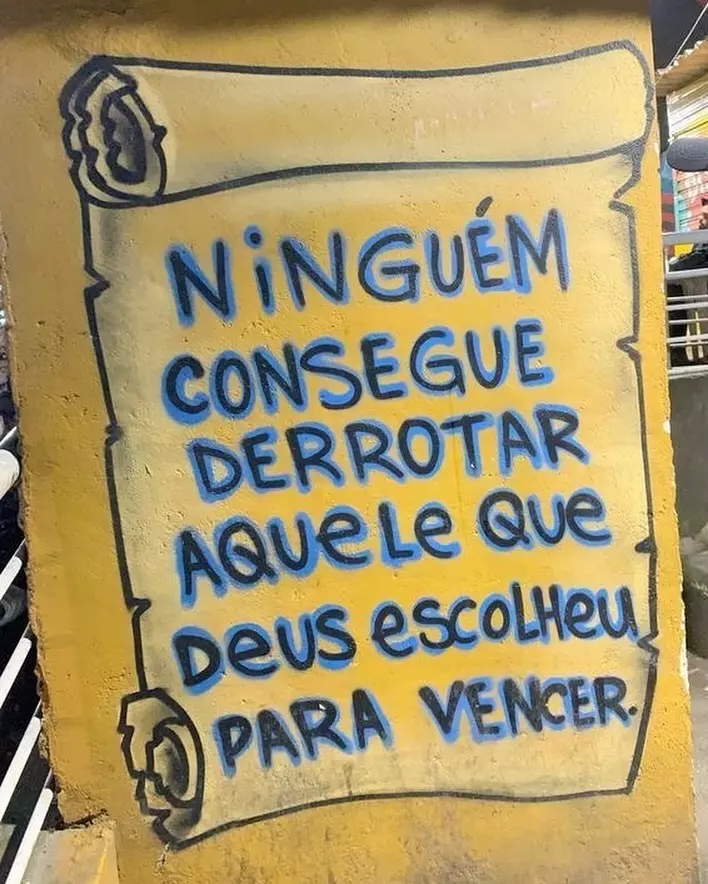 NiNGUÉM
CONSEGUE
DERROTAR
AQUeLe QUe
DeUS eSCOLHeU
PARA VENCER.